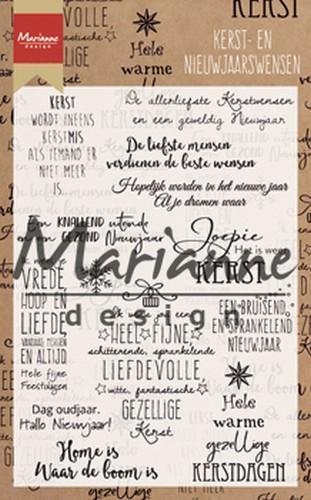 Marianne
design
KERST- EN
NIEUWJAARSWENSEN
KERST
Hele
warme
KERST
WORDT INEENS
KERSTMIS
ALS IEMAND ER
NIET MEER
IS...
De allerliefste Kerstwensen
en een geweldig Nieuwjaar
De liefste mensen
verdienen de beste wensen
Hopelijk worden in het nieuwe jaar
Al je dromen waar
Een KNALLEND uiteinde
en een GEZOND Nieuwjaar
Joepie
Het is weer
KERST
Marianne
design
VREDE
HOOP EN
LIEFDE,
VANDAAG, MORGEN
EN ALTIJD
Hele fijne
Feestdagen
HEEL FIJNE,
schitterende, sprankelende
LIEFDEVOLLE,
witte, fantastische
GEZELLIGE
Kerst
EEN BRUISEND
EN SPRANKELEND
NIEUWJAAR
Hele
warme
gezellige
KERSTDAGEN
Dag oudjaar,
Hallo Nieuwjaar!
Home is
Waar de boom is
gezellige